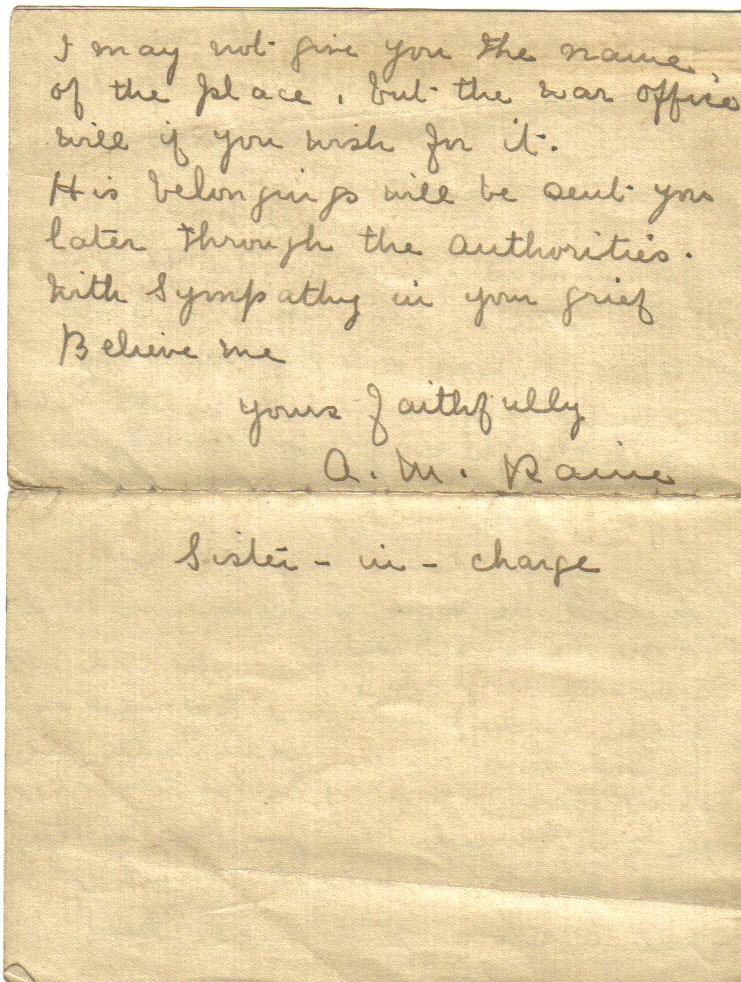 I may not give you the name
of the place, but the war office
will if you wish for it.
His belongings will be sent you
later through the authorities.
With Sympathy in your grief
Believe me
yours faithfully
A. M. Raine
Sister - in - charge